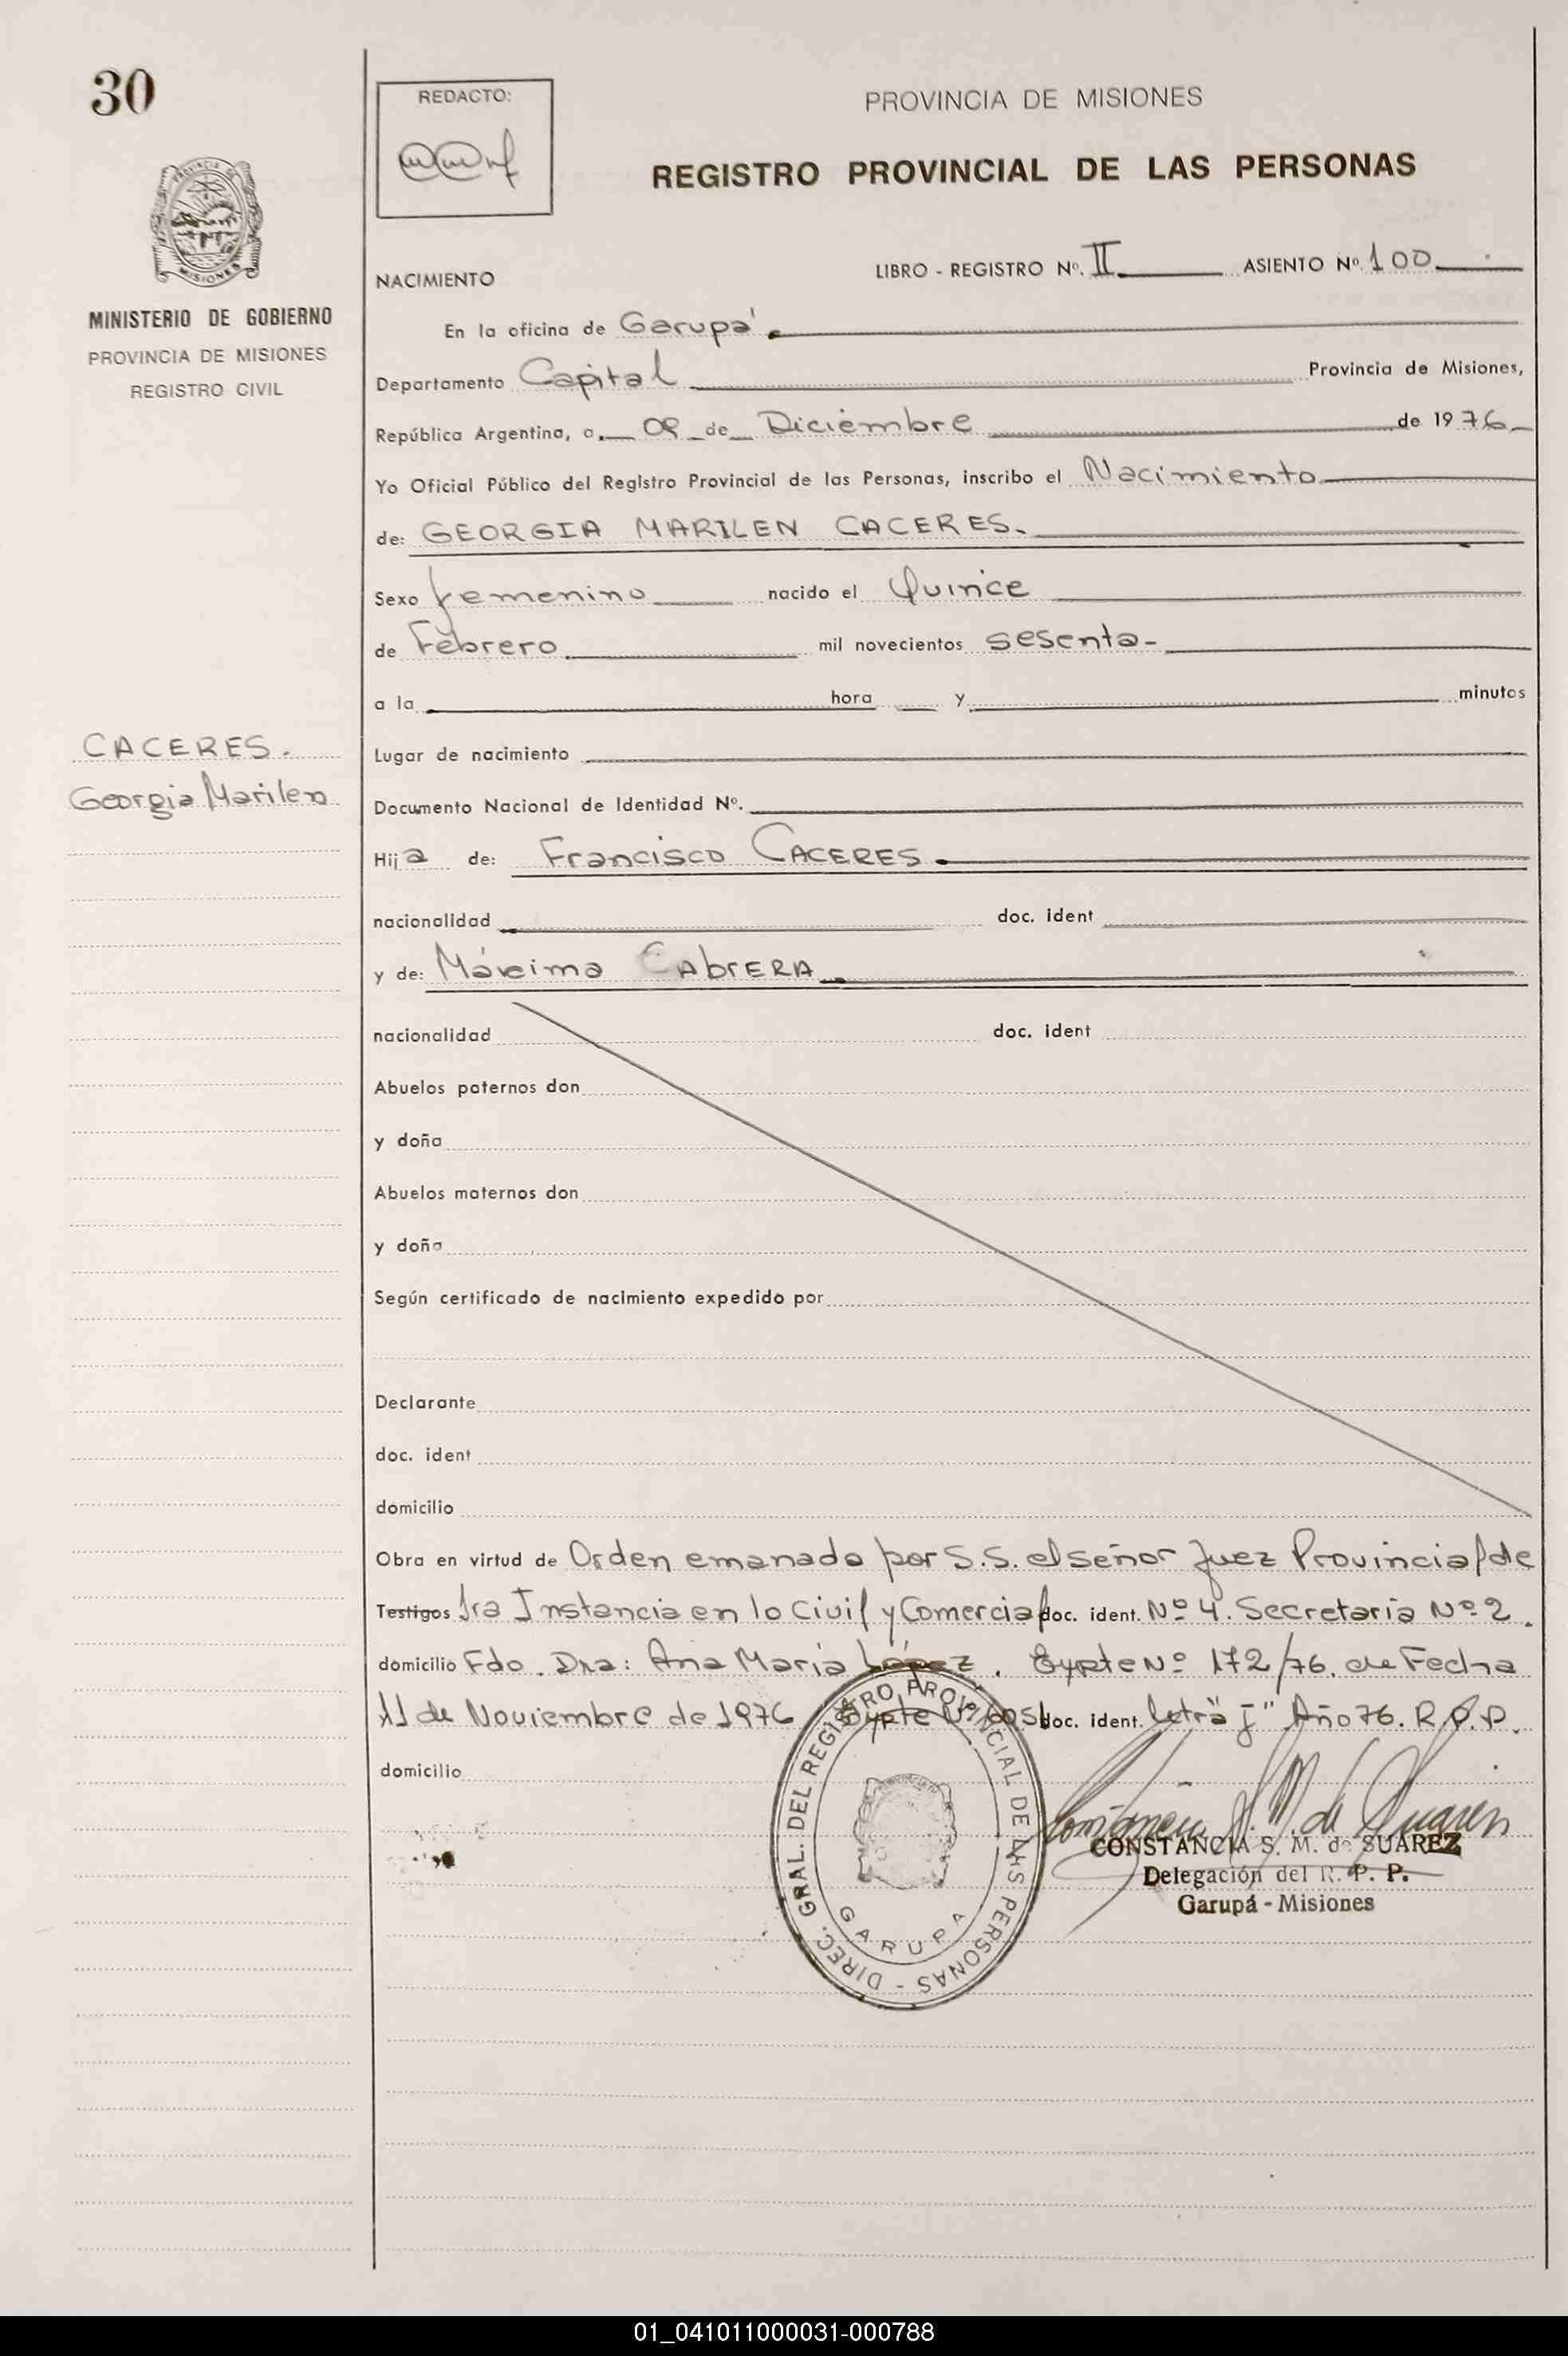 30
REDACTO:
PROVINCIA DE MISIONES
REGISTRO PROVINCIAL DE LAS PERSONAS
PROVINCIA DE MISIONES
MINISTERIO DE GOBIERNO
PROVINCIA DE MISIONES
REGISTRO CIVIL
NACIMIENTO LIBRO - REGISTRO Nº. II ASIENTO Nº 100
En la oficina de Garupá
Departamento Capital Provincia de Misiones,
República Argentina, a 09 de Diciembre de 1976
Yo Oficial Público del Registro Provincial de las Personas, inscribo el Nacimiento
de: GEORGIA MARILEN CACERES.
Sexo femenino nacido el Quince
de Febrero mil novecientos sesenta-
a la hora y minutos
CACERES.
Georgia Marilen
Lugar de nacimiento
Documento Nacional de Identidad Nº.
Hija de: Francisco CACERES
nacionalidad doc. ident
y de: Máxima CAbrERA
nacionalidad doc. ident
Abuelos paternos don
y doña
Abuelos maternos don
y doña
Según certificado de nacimiento expedido por
Declarante
doc. ident
domicilio
Obra en virtud de Orden emanado por S.S. el señor Juez Provincial de
Testigos 1ra Instancia en lo Civil y Comercial doc. ident. Nº 4. Secretaría Nº 2.
domicilio Fdo. Dra: Ana María López. Expte Nº 172/76. de Fecha
11 de Noviembre de 1976 Expte Nº doc. ident. letra "J" Año 76. R.P.P.
domicilio
DIREC. GRAL. DEL REGISTRO PROVINCIAL DE LAS PERSONAS -
GARUPA
CONSTANCIA S. M. de SUAREZ
Delegación del R. P. P.
Garupá - Misiones
01_041011000031-000788